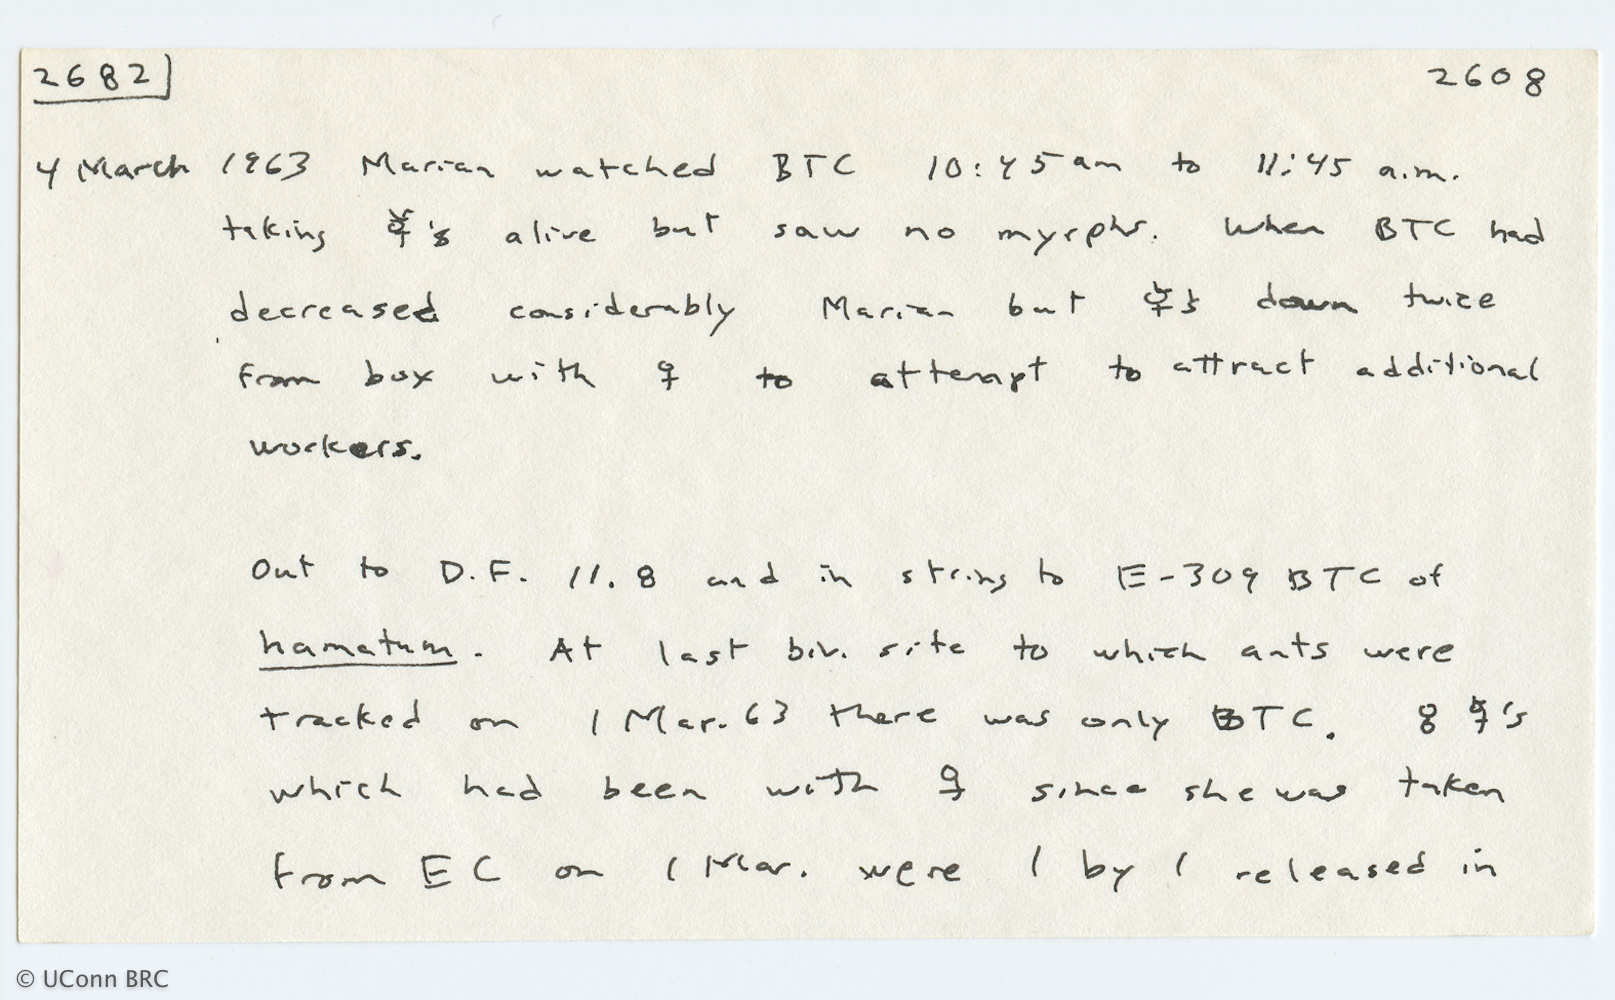 2682] 2608
4 March 1963 Marian watched BTC 10:45 am to 11:45 a.m.
taking ☿'s alive but saw no myrphs. When BTC had
decreased considerably Marian but ☿s down twice
from box with ♀ to attempt to attract additional
workers.
Out to D.F. 11.8 and in string to E-309 BTC of
hamatum. At last biv. site to which ants were
tracked on 1 Mar. 63 there was only BTC. 8 ☿'s
which had been with ♀ since she was taken
from EC on 1 Mar. were 1 by 1 released in
© UConn BRC